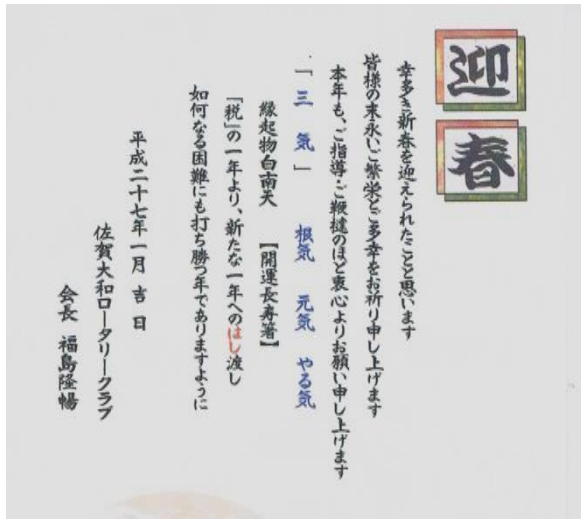 迎春
幸多き新春を迎えられたことと思います
皆様の末永いご繁栄とご多幸をお祈り申し上げます
本年も、ご指導・ご鞭撻のほど衷心よりお願い申し上げます
「三気」 根気 元気 やる気
縁起物白南天 【開運長寿箸】
『税』の一年より、新たな一年へのはし渡し
如何なる困難にも打ち勝つ年でありますように
平成二十七年一月吉日
佐賀大和ロータリークラブ
会長 福島隆暢